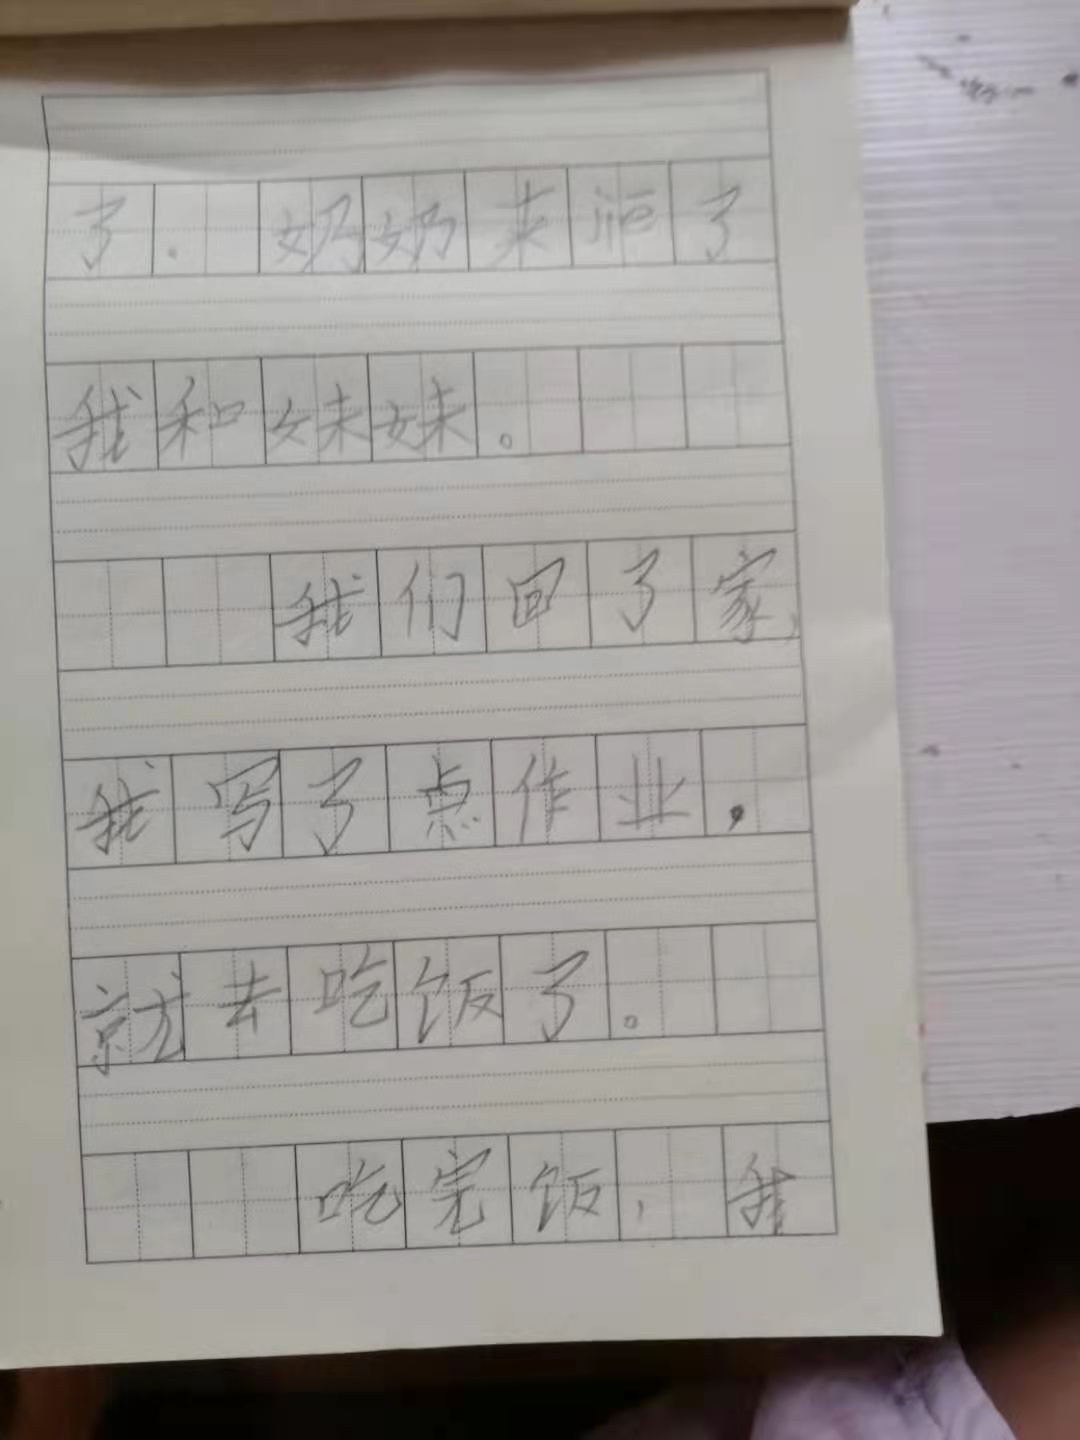 了. 奶奶来jiē了
我和妹妹。
我们回了家,
我写了点作业,
就去吃饭了。
吃完饭,我